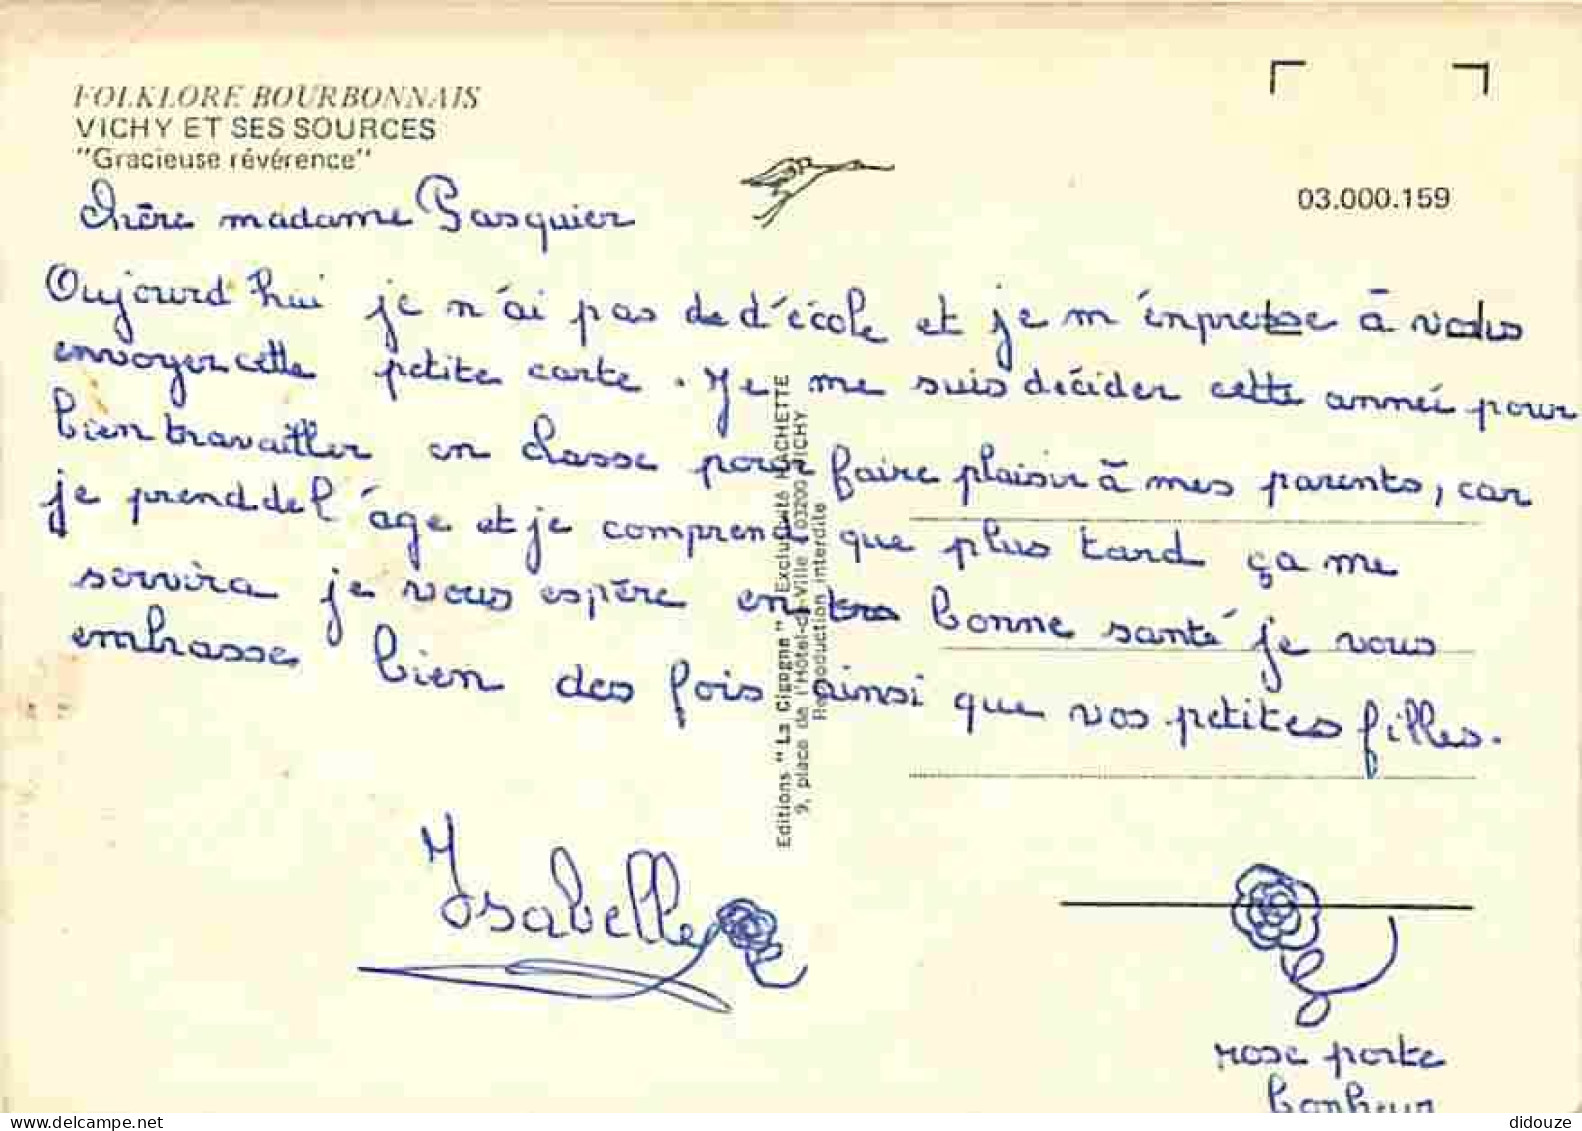 FOLKLORE BOURBONNAIS
VICHY ET SES SOURCES
"Gracieuse révérence"
03.000.159
Chère madame Pasquier
Oujourd'hui je n'ai pas de d'école et je m'énpresse à vous
envoyer cette petite carte. Je me suis décider cette anneé pour
bien travailler en classe pour faire plaisir à mes parents, car
je prend de l'âge et je comprend que plus tard ça me
servira je vous espère en bonne santé je vous
embrasse bien des fois ainsi que vos petites filles.
Isabelle
Editions "La Cigogne" Exclusivité HACHETTE
9, place de l'Hôtel-de-Ville 03200 VICHY
Reproduction interdite
rose porte
bonheur
didouze